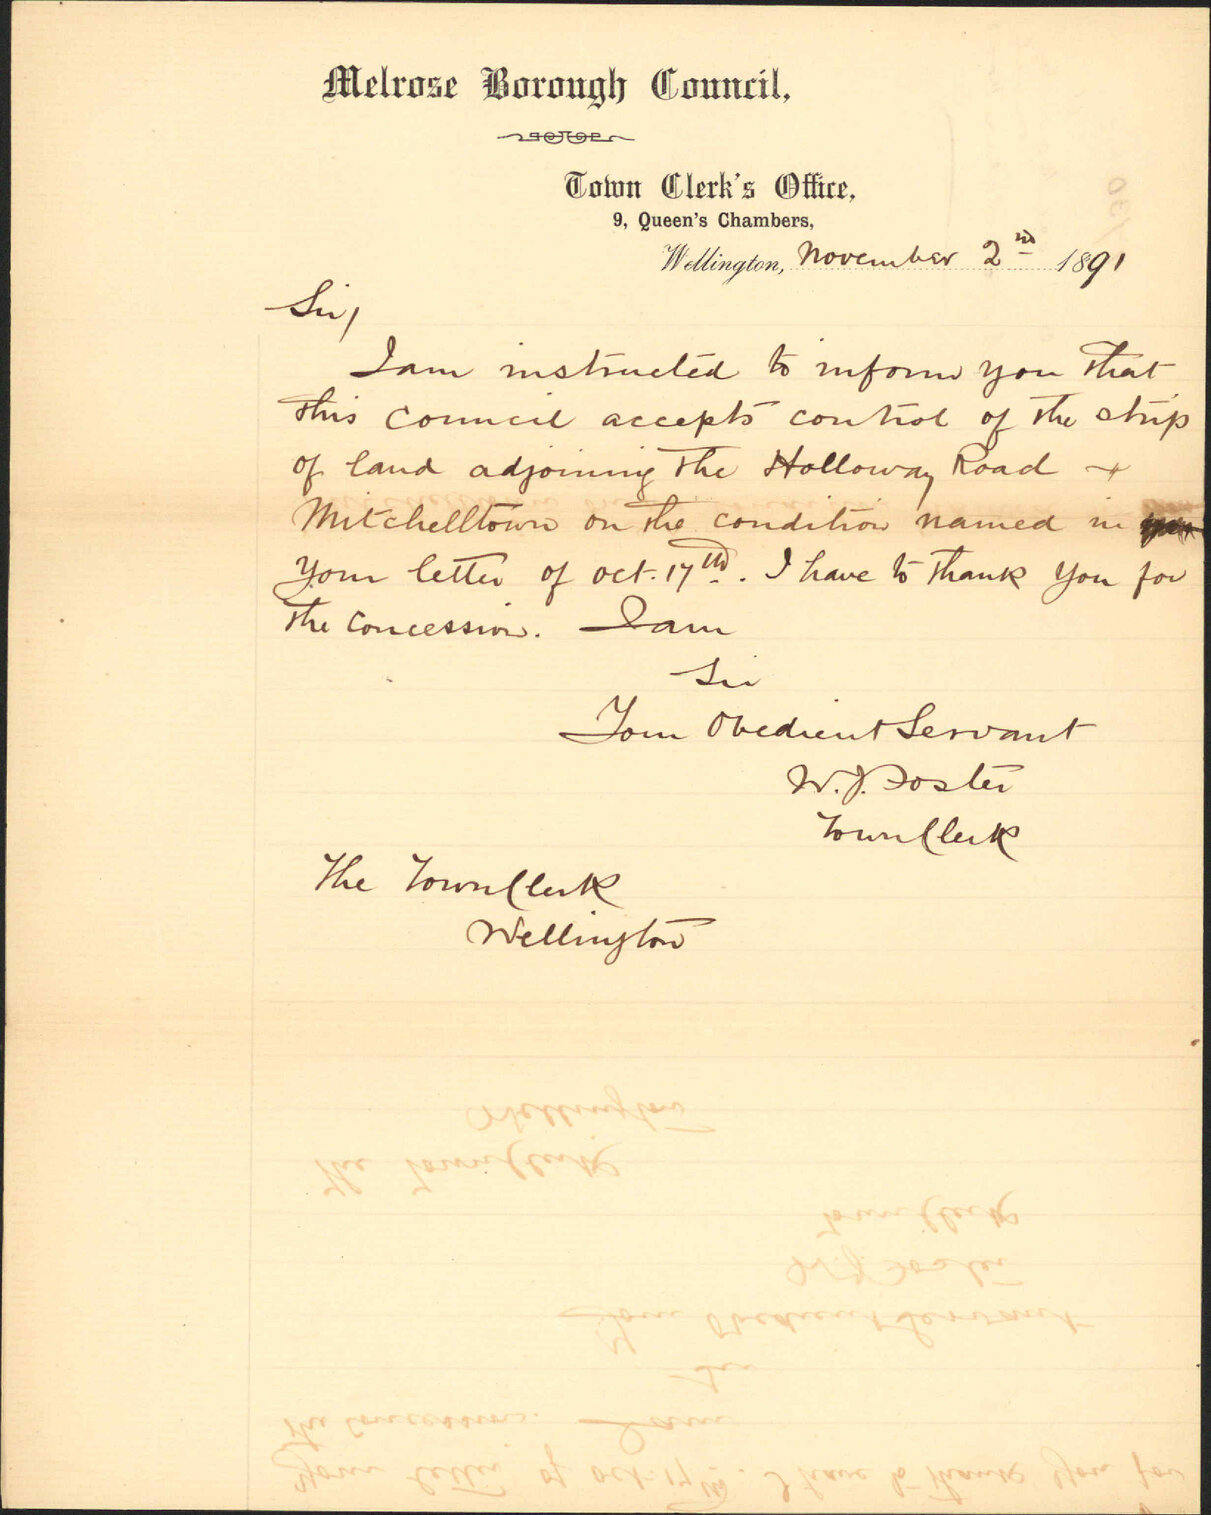 Melrose Borough Council,
Town Clerk's Office,
9, Queen's Chambers,
Wellington, November 2nd 1891
Sir,
I am instructed to inform you that
this Council accepts control of the strip
of land adjoining the Holloway Road +
Mitchelltown on the condition named in
your letter of Oct. 17th. I have to thank you for
the concession. I am
Sir
Your Obedient Servant
W. J. Foster
Town Clerk
The Town Clerk
Wellington